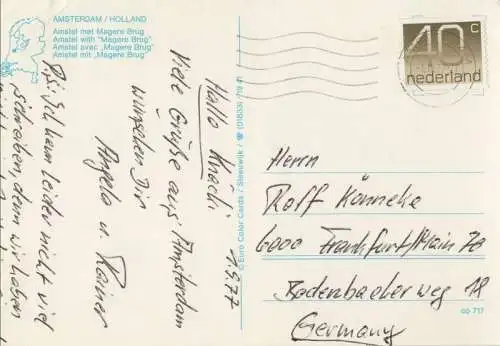 AMSTERDAM / HOLLAND
Amstel met Magere Brug
Amstel with "Magere Brug"
Amstel avec „Magere Brug"
Amstel mit „Magere Brug"
1977
Hallo Knücki
Viele Grüße aus Amsterdam
wünschen Dir
Angela u. Rainer
P.S. Ich kann leider nicht viel
schreiben, denn wir haben
© Euro Color Cards / Steenwijk / ☎
40 c
nederland
Herrn
Rolf Könneke
6000 Frankfurt/Main
weg 18
Germany
co 717